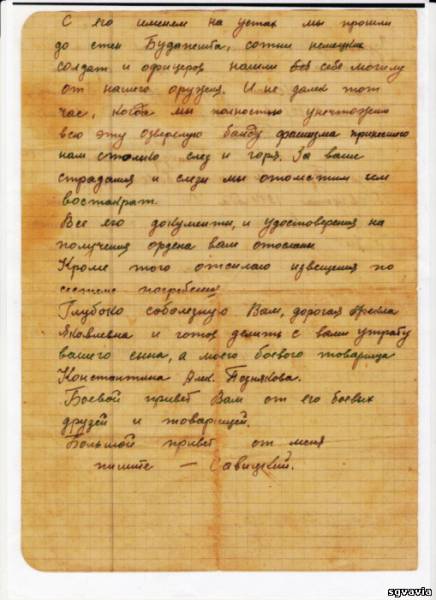 С его именем на устах мы прошли
до стен Будапешта, сотни немецких
солдат и офицеров нашли себе могилу
от нашего оружия. И не далек тот
час, когда мы полностью уничтожим
всю эту озверелую банду фашизма принесшего
нам столько слез и горя. За ваше
страдания и слезы мы отомстим им
востакрат.
Все его документы, и удостоверения на
получения ордена вам отосланы
Кроме того отсылаю извещения по
месту погребения
Глубоко соболезную Вам, дорогая
Яковлевна и готов делить с вами утрату
вашего сына, а моего боевого товарища
Константина Алек. Позднякова.
Боевой привет Вам от его боевых
друзей и товарищей.
Большой привет от меня
пишите — Савицкий.
sgvavia